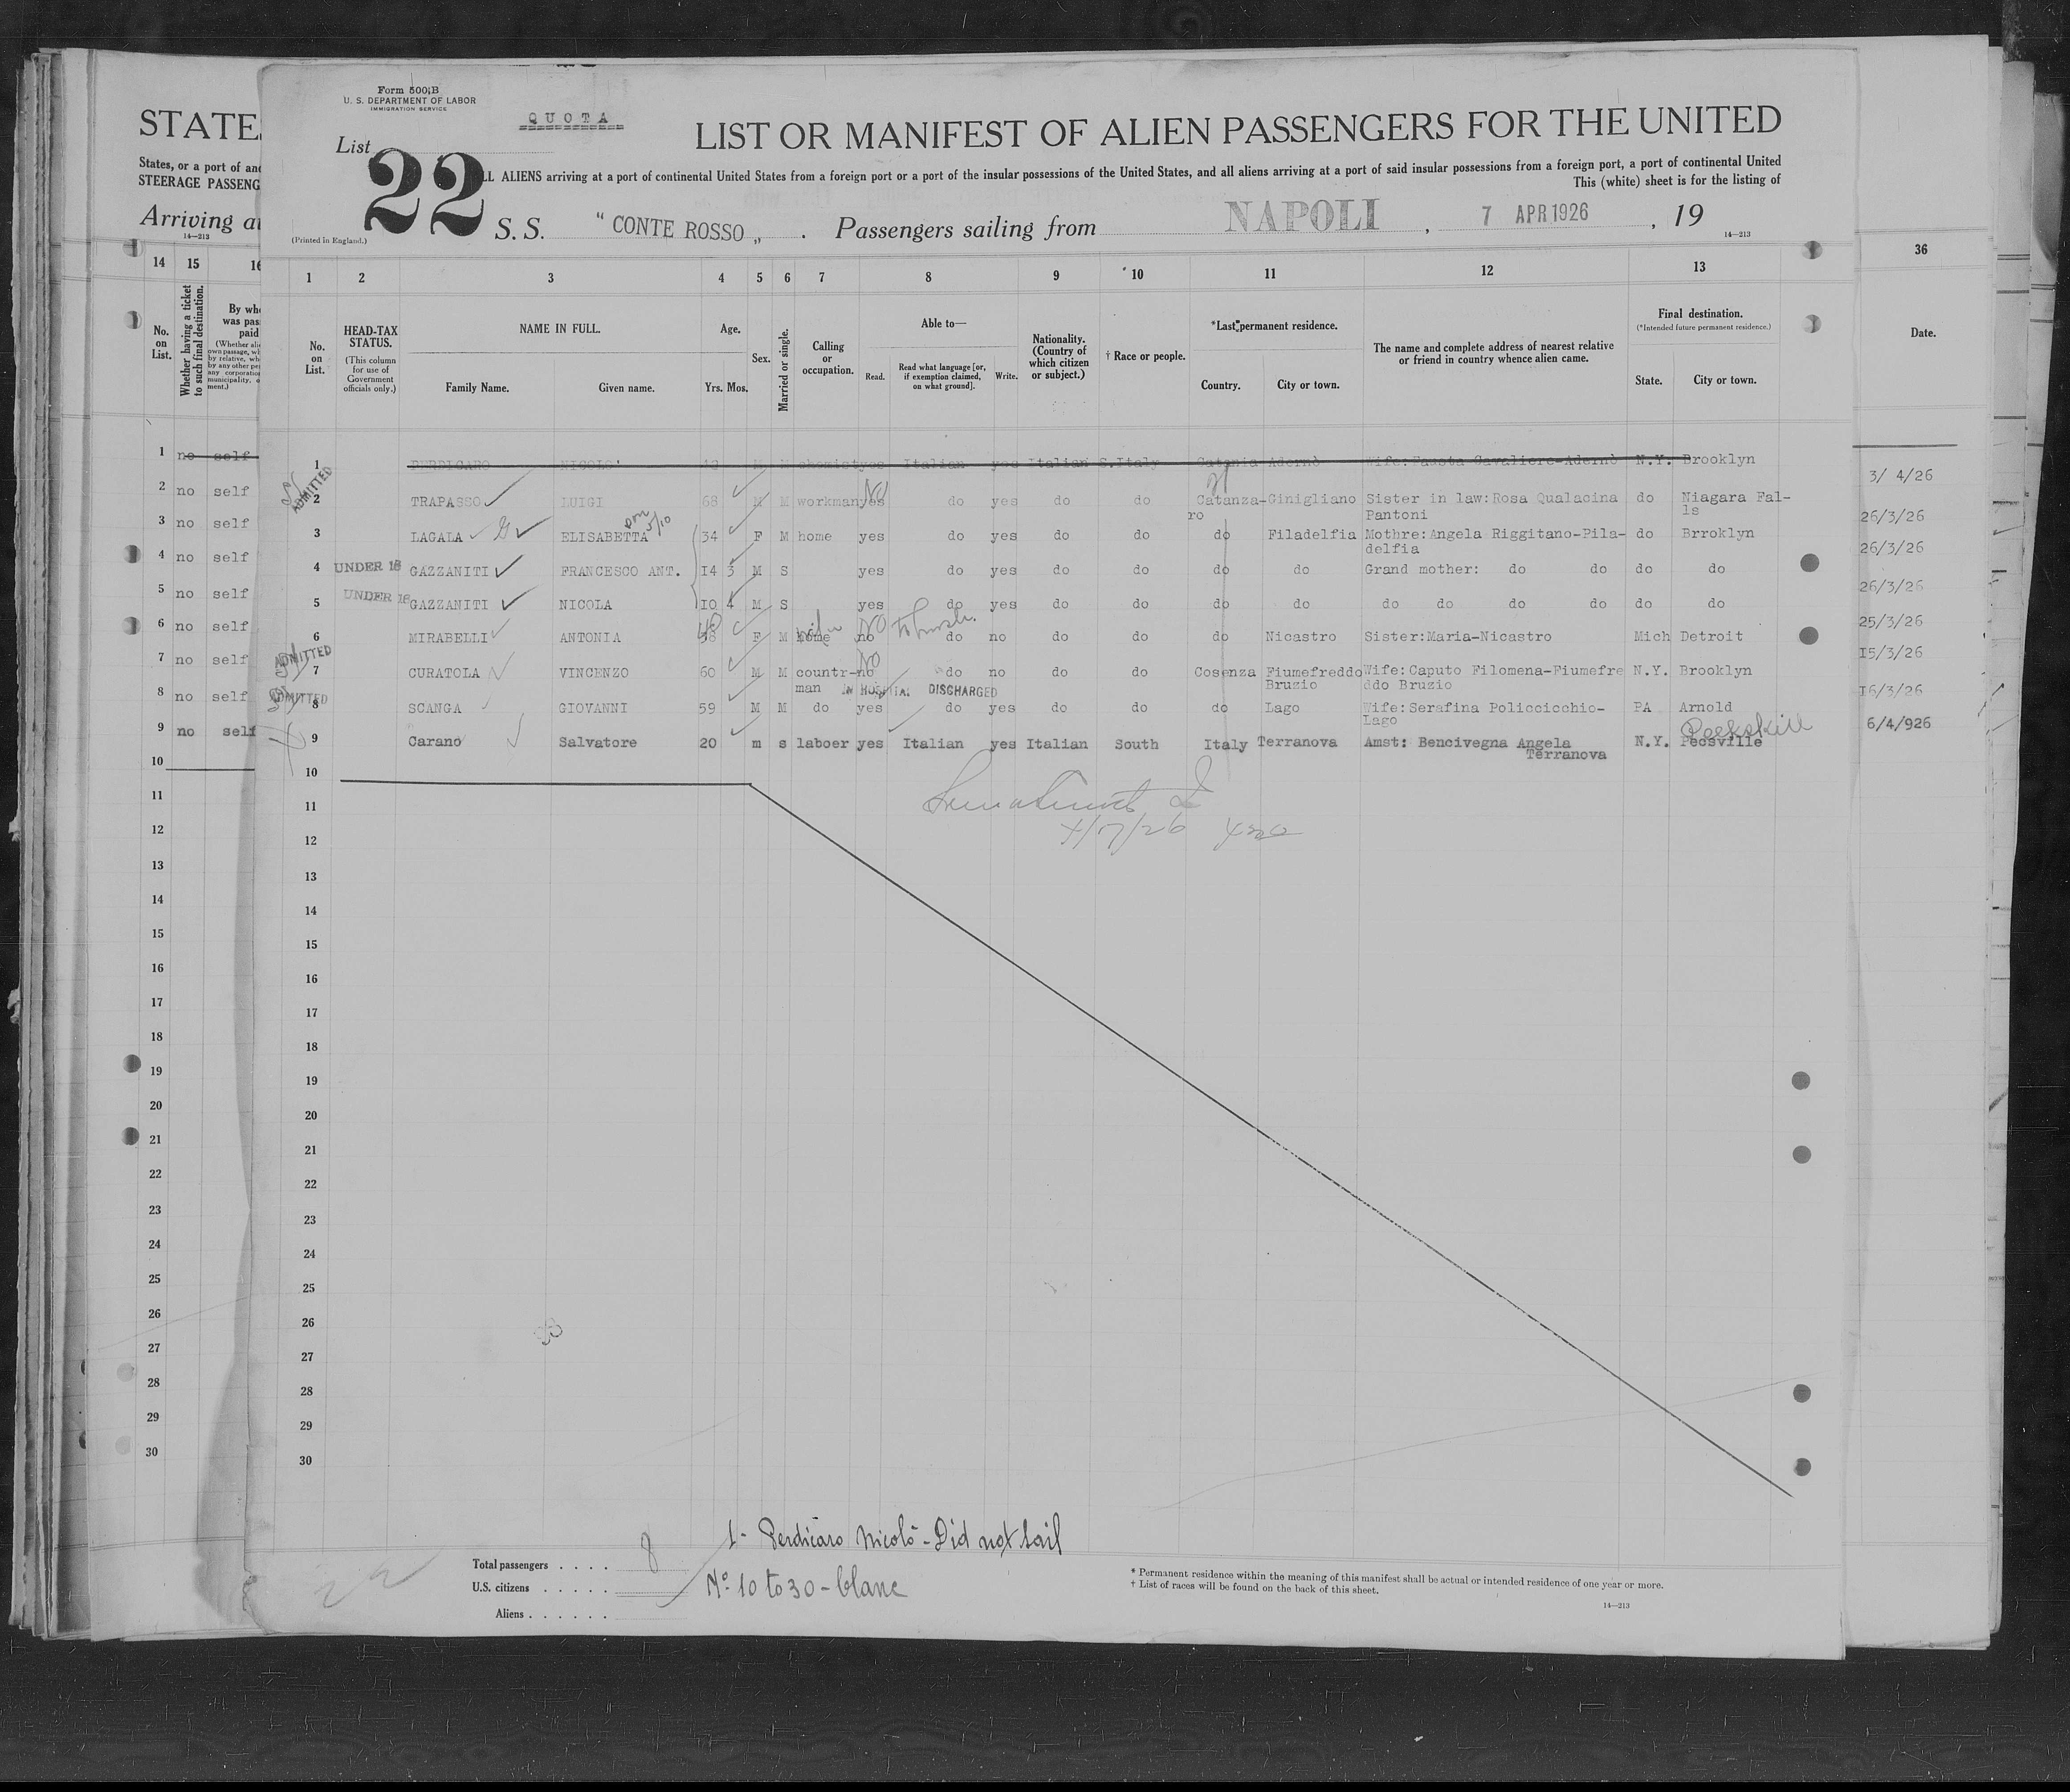 Form 500 B
U. S. DEPARTMENT OF LABOR
IMMIGRATION SERVICE
QUOTA
List
22
LIST OR MANIFEST OF ALIEN PASSENGERS FOR THE UNITED
ALL ALIENS arriving at a port of continental United States from a foreign port or a port of the insular possessions of the United States, and all aliens arriving at a port of said insular possessions from a foreign port, a port of continental United
This (white) sheet is for the listing of
S. S. "CONTE ROSSO„ . Passengers sailing from NAPOLI , 7 APR 1926 , 19
(Printed in England.)
14—213
STATES
States, or a port of an
STEERAGE PASSENG
Arriving at
14—213
14 15 16
No. on List.
Whether having a ticket to such final destination.
By wh
was pas
paid
1 2 3 4 5 6 7 8 9 10 11 12 13 36
No. on List.
HEAD-TAX STATUS.
(This column for use of Government officials only.)
NAME IN FULL.
Family Name. Given name.
Age.
Yrs. Mos.
Sex.
Married or single.
Calling or occupation.
Able to—
Read. Read what language [or, if exemption claimed, on what ground]. Write.
Nationality. (Country of which citizen or subject.)
† Race or people.
*Last permanent residence.
Country. City or town.
The name and complete address of nearest relative or friend in country whence alien came.
Final destination.
(*Intended future permanent residence.)
State. City or town.
Date.
1 no self
1 PERDICARO NICOLO' M M chemist yes Italian yes Italian S.Italy Catania Adernò Wife: Cavaliere-Adernò N.Y. Brooklyn
2 no self
ADMITTED 2 TRAPASSO LUIGI 68 M M workman yes NO do yes do do Catanza- Ginigliano Sister in law:Rosa Qualacina do Niagara Fal- 3/ 4/26
ro Pantoni ls
3 no self
3 LAGALA ELISABETTA 34 F M home yes do yes do do do Filadelfia Mothre:Angela Riggitano-Pila- do Brroklyn 26/3/26
delfia
4 no self
4 UNDER 16 GAZZANITI FRANCESCO ANT. 14 3 M S yes do yes do do do do Grand mother: do do do do 26/3/26
5 no self
5 UNDER 16 GAZZANITI NICOLA 10 4 M S yes do yes do do do do do do do do do do 26/3/26
6 no self
6 MIRABELLI ANTONIA 38 F M home no NO do no do do do Nicastro Sister:Maria-Nicastro Mich Detroit 25/3/26
7 no self
ADMITTED 7 CURATOLA VINCENZO 60 M M countr- no NO do no do do Cosenza Fiumefreddo Wife:Caputo Filomena-Fiumefre N.Y. Brooklyn 15/3/26
man IN HOSPITAL DISCHARGED Bruzio ddo Bruzio
8 no self
ADMITTED 8 SCANGA GIOVANNI 59 M M do yes do yes do do do Lago Wife:Serafina Policcicchio- PA Arnold 16/3/26
Lago
9 no self
9 Carano Salvatore 20 m s laboer yes Italian yes Italian South Italy Terranova Amst: Bencivegna Angela N.Y. Pecsville Peekskill 6/4/926
Terranova
10
11
4/17/26
12
13
14
15
16
17
18
19
20
21
22
23
24
25
26
27
28
29
30
1- Perdicaro Nicolò - Did not sail
Nº 10 to 30 - blanc
Total passengers . . . . 8
U.S. citizens . . . . .
Aliens . . . . . .
22
* Permanent residence within the meaning of this manifest shall be actual or intended residence of one year or more.
† List of races will be found on the back of this sheet.
14—213